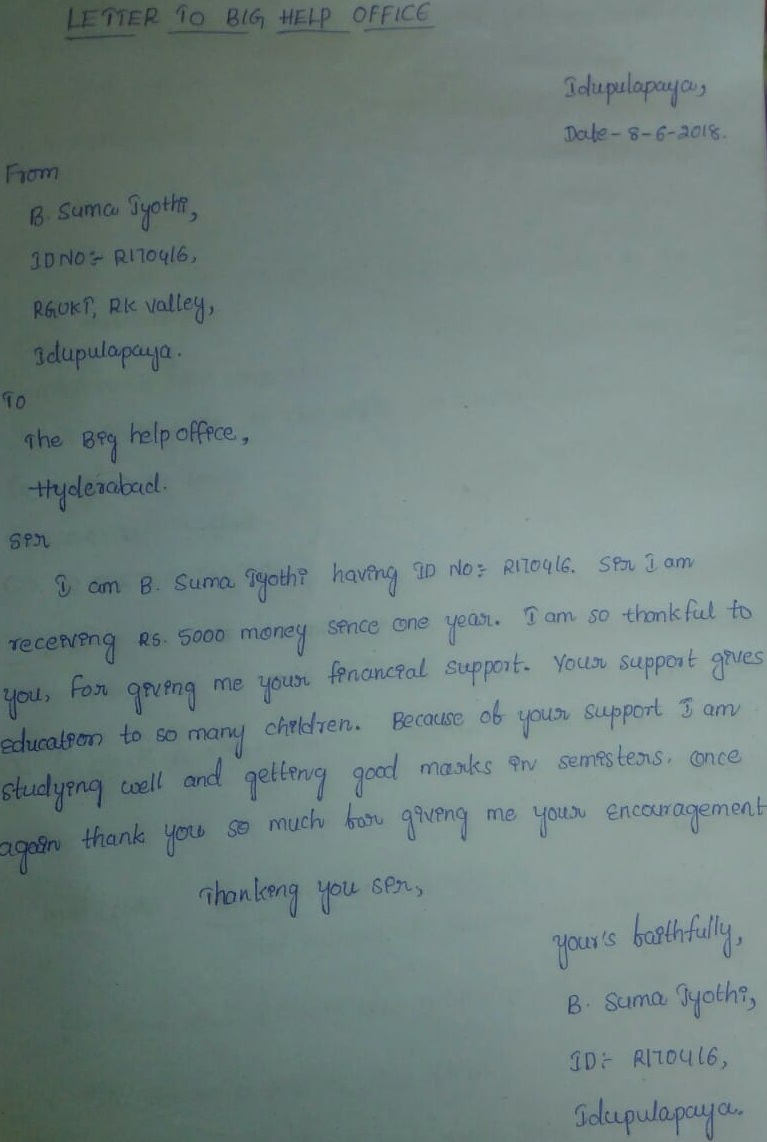 LETTER TO BIG HELP OFFICE
Idupulapaya,
Date - 8-6-2018.
From
B. Suma Jyothi,
ID NO:- R170416,
RGUKT, RK valley,
Idupulapaya.
To
The Big help office,
Hyderabad.
Sir
I am B. Suma Jyothi having ID No:- R170416. Sir I am
receiving Rs. 5000 money since one year. I am so thankful to
you, for giving me your financial support. Your support gives
education to so many children. Because of your support I am
studying well and getting good marks in semisters. once
again thank you so much for giving me your encouragement
Thanking you sir,
your's faithfully,
B. Suma Jyothi,
ID:- R170416,
Idupulapaya.